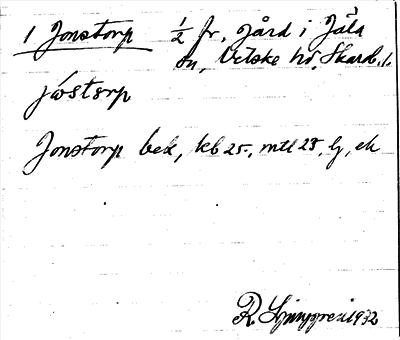 1 Jonstorp ½ fr, gård i Jäla
sn, Vilske hd, Skarab. l.
jóstorp
Jonstorp bek, kb 25, mtl 28, lj, ek
R. Ljunggren 1932